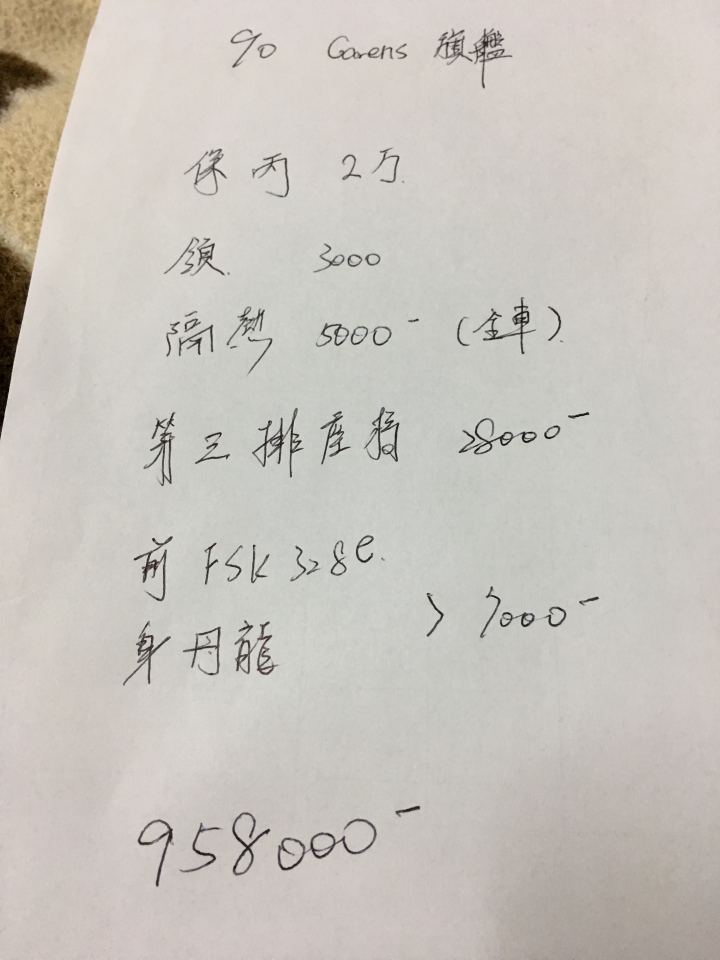 90 Carens 旗艦
保丙 2万
領 3000
隔熱 5000- (全車)
第三排座椅 28000-
前 FSK 328e.
> 7000-
身 丹龍
958000-